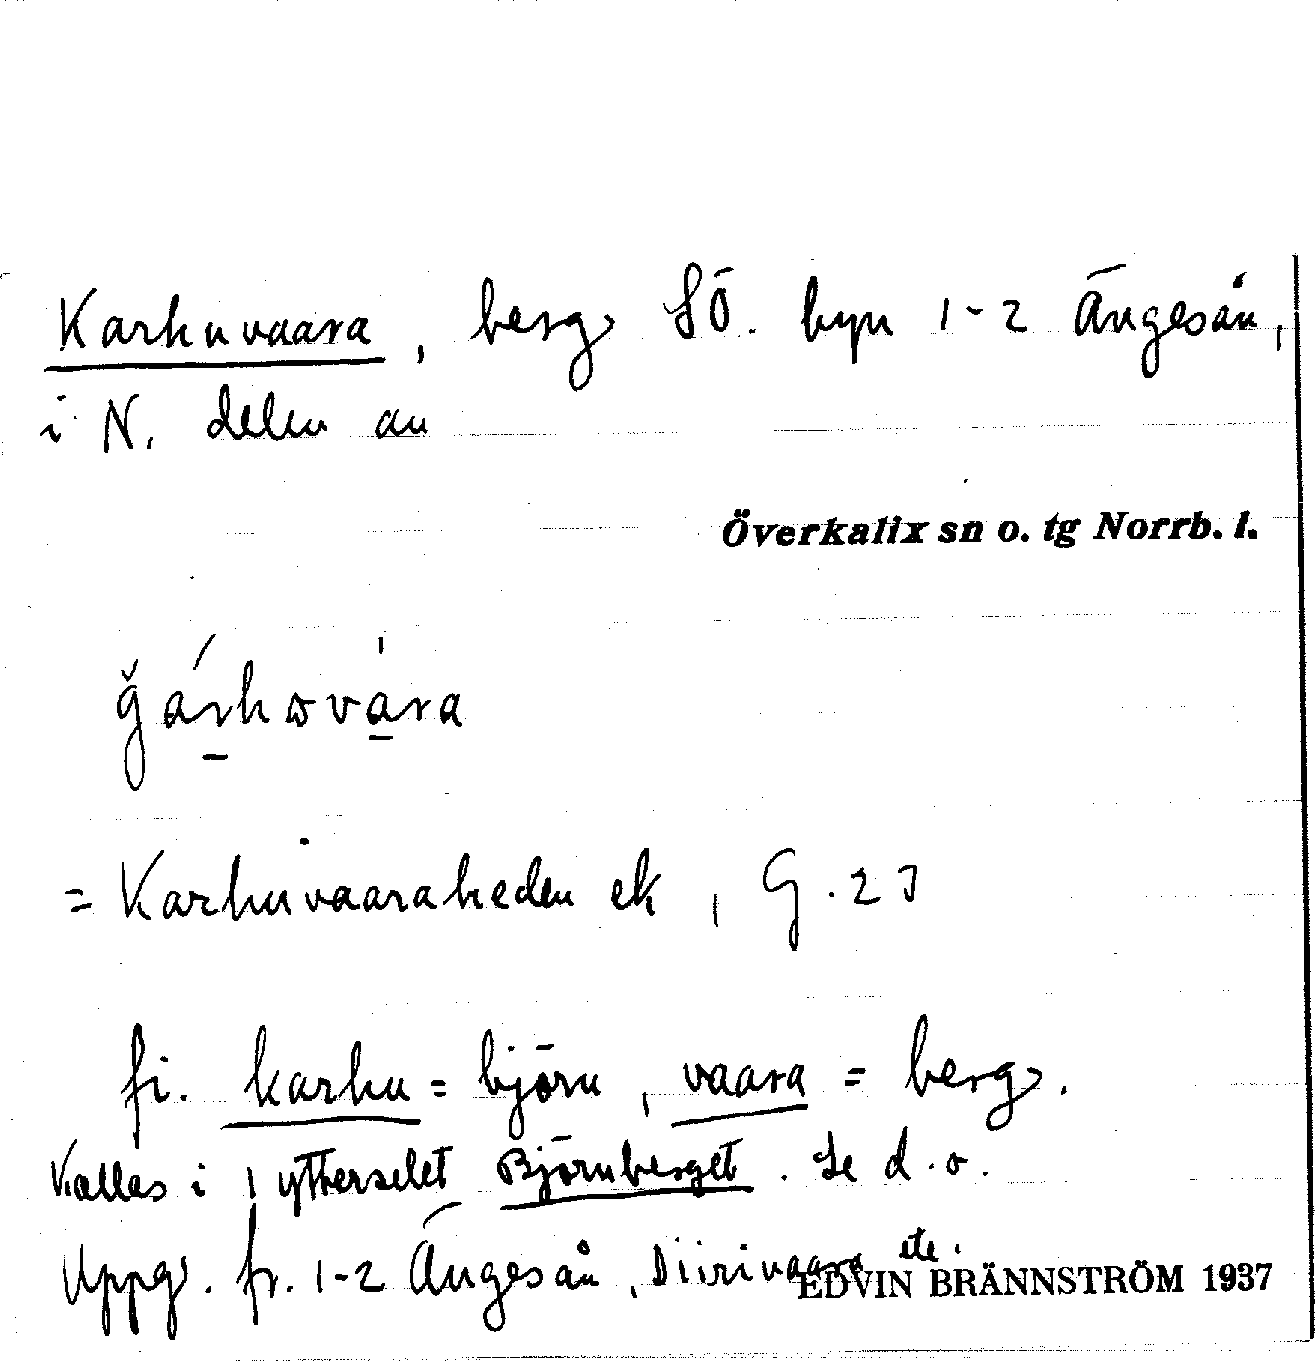 Karhuvaara, berg SÖ. byn 1-2 Ängesån,
i N. delen av
Överkalix sn o. tg Norrb. l.
= Karhuvaaraheden ek, G. 23
fi. karhu = björn, vaara = berg.
Kallas i 1 ytterselet Björnberget. Se d.o.
Uppg. fr. 1-2 Ängesån, Diirivaara etc.
EDVIN BRÄNNSTRÖM 1937